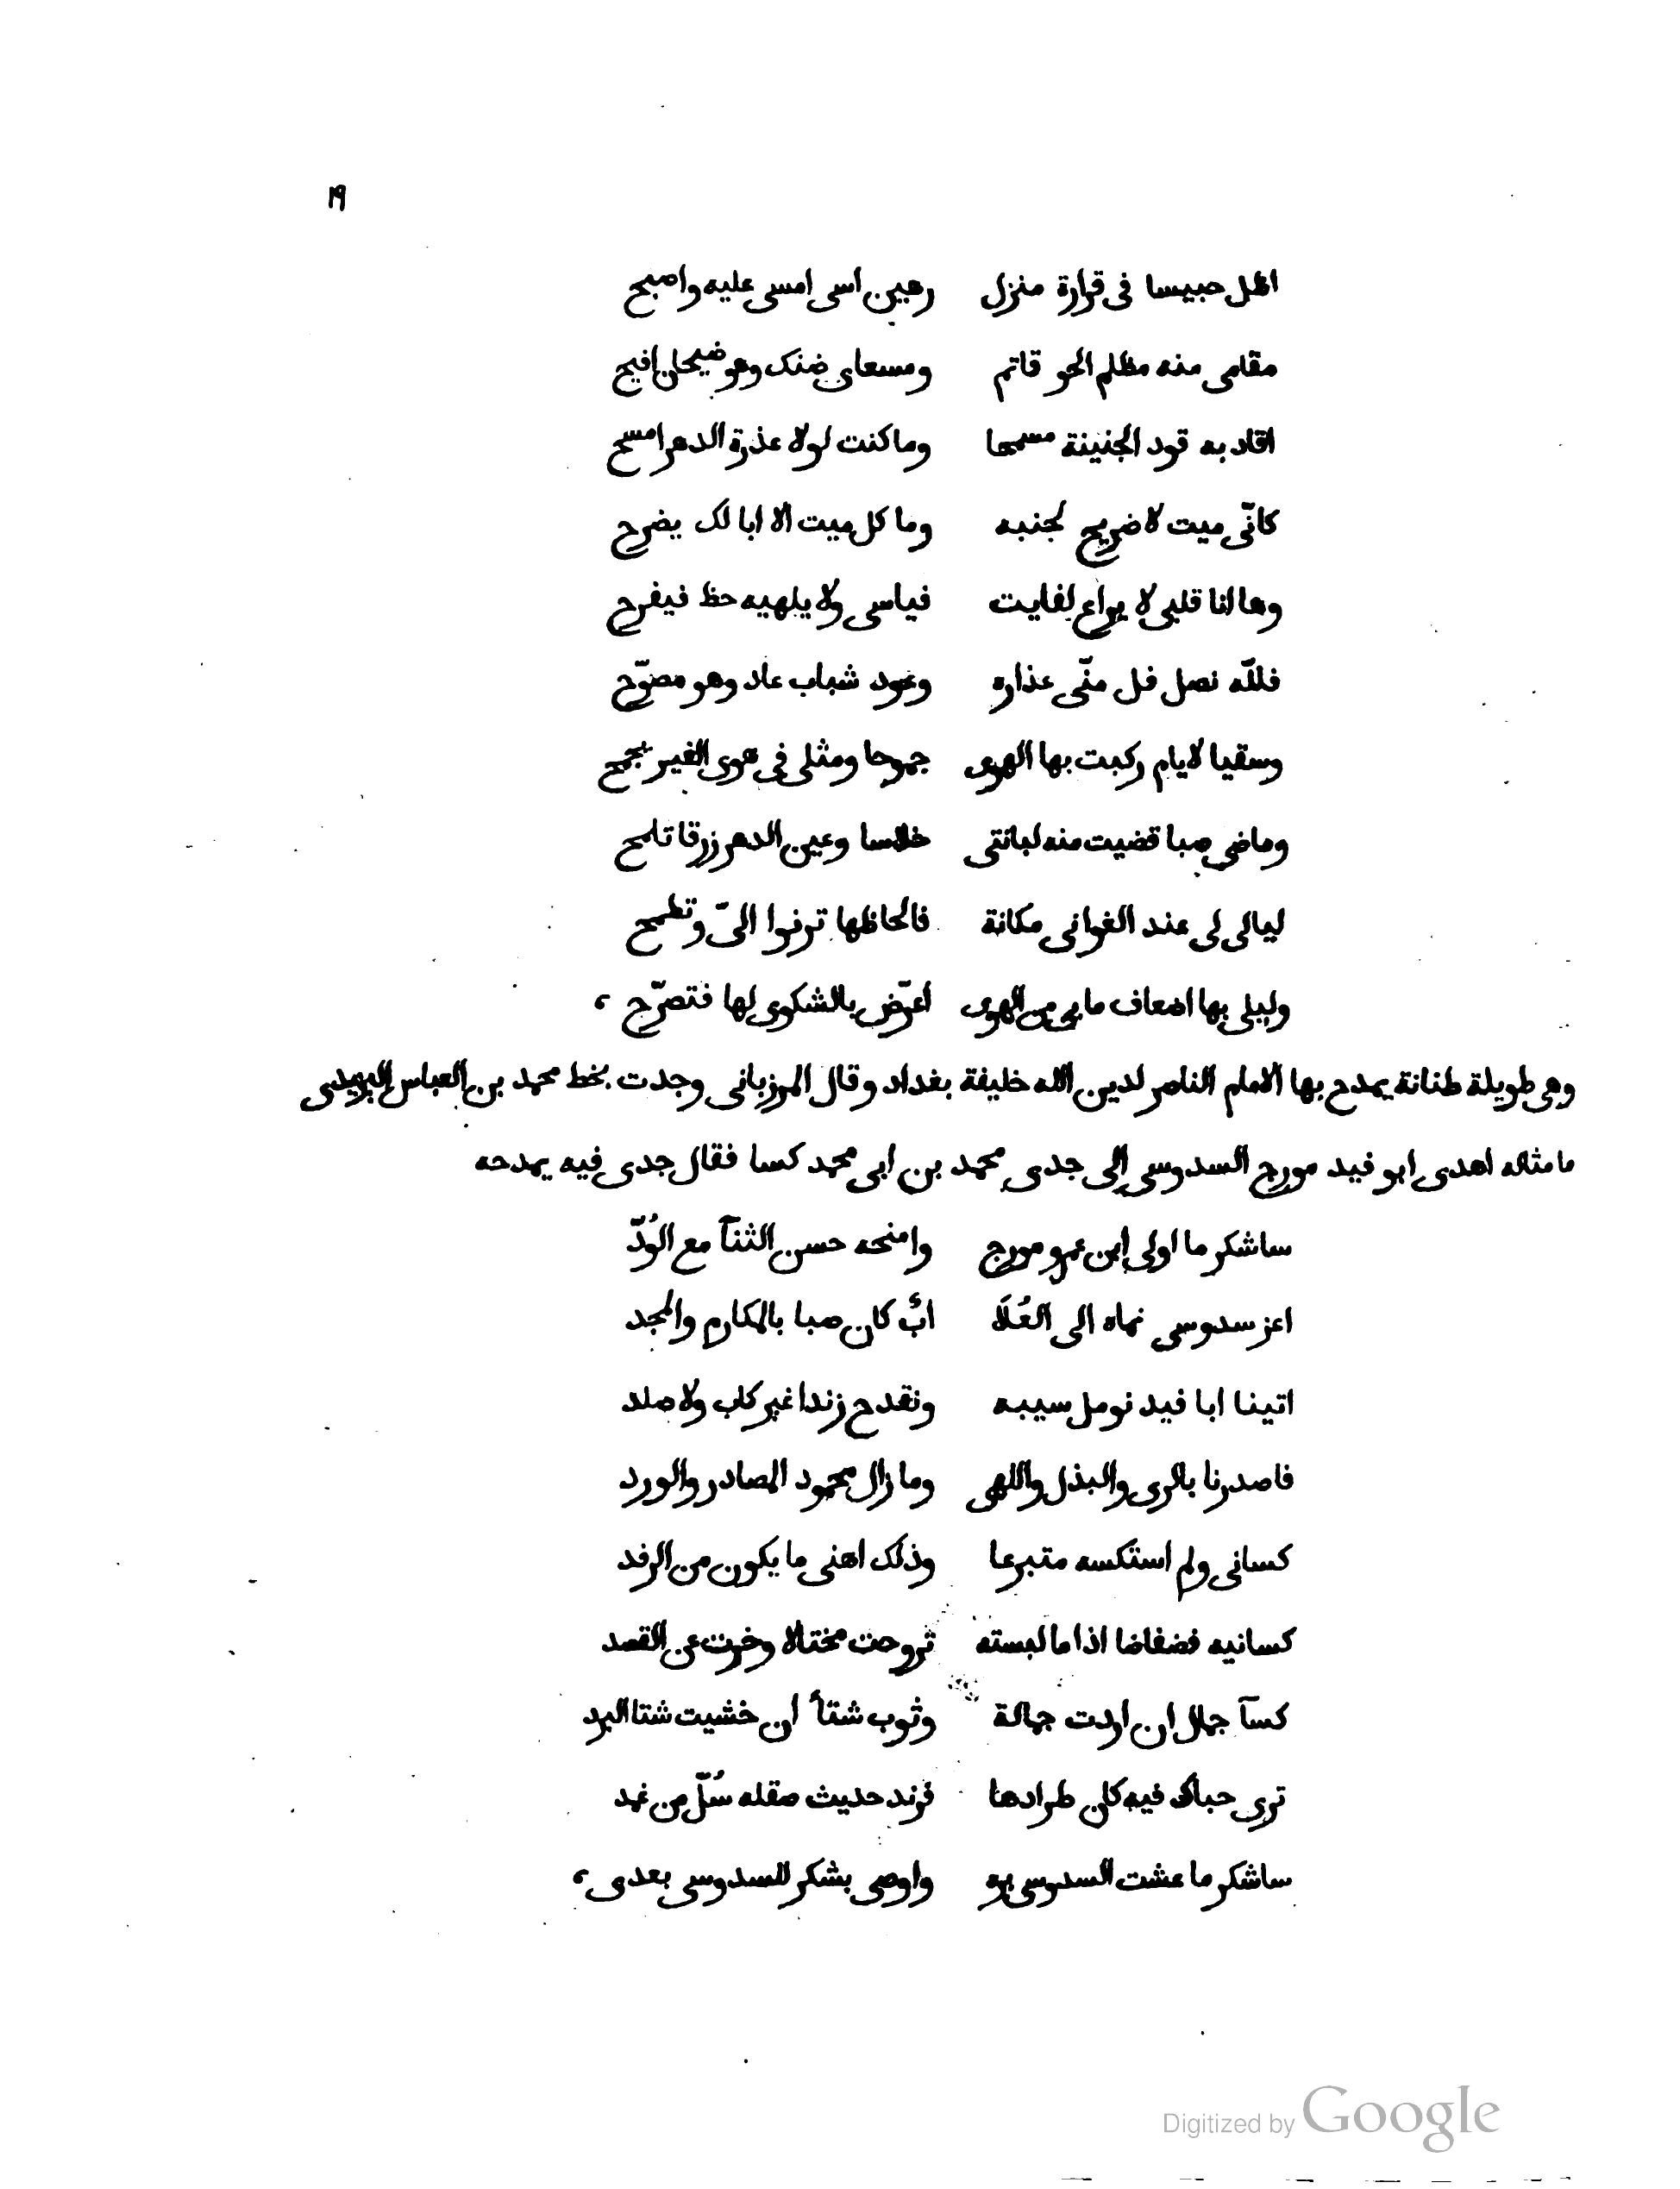 ١٩
اظل حبيسا فى قرارة منزل رهين اسى امسى عليه واصبح
مقامى منه مظلم الجو قاتم ومسعاى ضنك وهو ضيحان افيح
اقاد به قود الجنينة مسمحا وما كنت لولا عذرة الدهر امسح
كانّى ميت لا ضريح لجنبه وما كل ميت الا ابا لك يضرح
وها انا قلبى لا يراع لفايت فياسى ولا يلهيه حظ فيفرح
فللّه نصل فل منّى عذاره وعود شباب عاد وهو مصوّح
وسقيا لايام ركبت بها الهوى جموحا ومثلى فى هوى الغير يجمح
وماضى صبا قضيت منه لبانتى خلاسا وعين الدهر زرقا تلمح
ليالى لى عند الغوانى مكانة فالحاظها ترنوا الىّ وتطمح
وليلى بها اضعاف ما بى من الهوى اعرّض بالشكوى لها فتصرّح ،
وهى طويلة طنانة يمدح بها الامام الناصر لدين الله خليفة بغداد وقال المرزبانى وجدت بخط محمد بن العباس اليزيدى
ما مثاله اهدى ابو فيد مورج السدوسى الى جدى محمد بن ابى محمد كسا فقال جدى فيه يمدحه
ساشكر ما اولى ابن عمرو مورج وامنحه حسن الثنآ مع الوُدّ
اعز سدوسى نماه الى العُلَا ابٌ كان صبا بالمكارم والمجد
اتينا ابا فيد نومل سيبه ونقدح زندا غير كاب ولا صلد
فاصدرنا بالرى والبذل واللهى وما زال محمود المصادر والورد
كسانى ولم استكسه متبرعا وذلك اهنى ما يكون من الرفد
كسانيه فضفاضا اذا ما لبسته تروحت مختالا وخرت عن القصد
كسآ جمال ان اردت جمالة وثوب شتأ ان خشيت شتا البرد
ترى حباك فيه كان طرادها فرند حديث صقله سُلّ من غمد
ساشكر ما عشت السدوسى بره واوصى بشكر للسدوسى بعدى ،
Digitized by Google